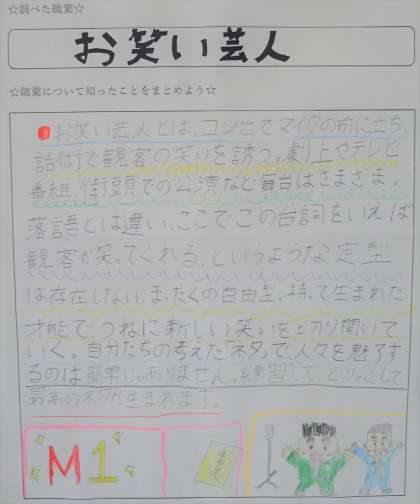 ☆調べた職業☆
お笑い芸人
☆職業について知ったことをまとめよう☆
お笑い芸人とは、コンビでマイクの前に立ち、
話術で観客の笑いを誘う。劇上やテレビ
番組、街頭での公演など舞台はさまざま。
落語とは違い、ここでこの台詞をいえば
観客が笑ってくれる、というような定型
は存在しない、まったくの自由型。持って生まれた
才能で、つねに新しい笑いを切り開いて
いく。自分たちの考えた「ネタ」で、人々を魅了す
るのは簡単じゃありません。練習して
最高のネタが生まれます。
M1